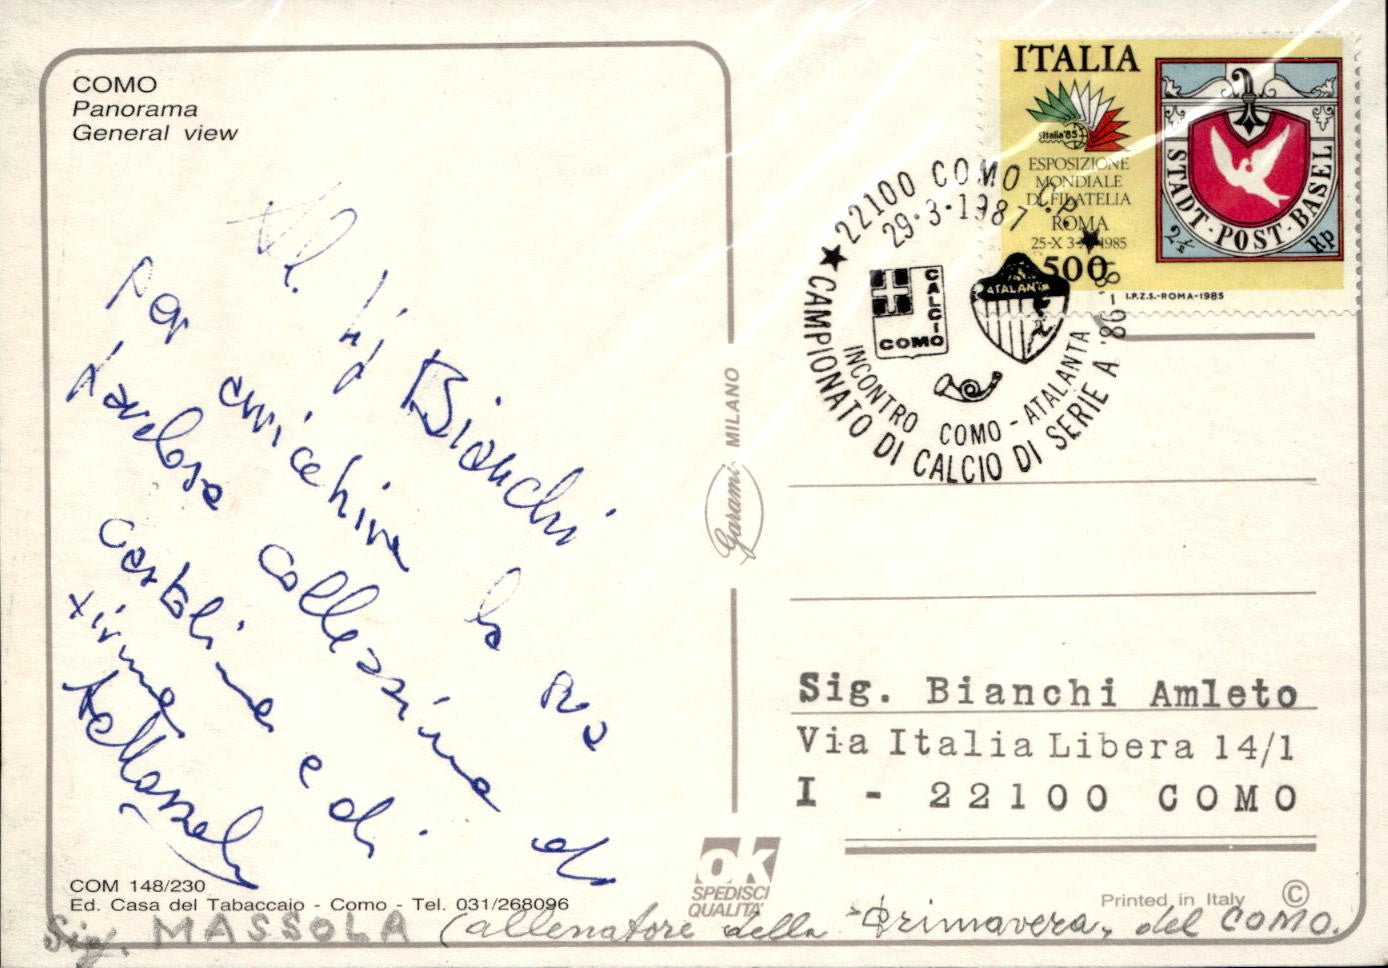 COMO
Panorama
General view
Al Sig Bianchi
per arricchire la sua
favolosa collezione di
cartoline e di
firme
COM 148/230
Ed. Casa del Tabaccaio - Como - Tel. 031/268096
Sig. MASSOLA (allenatore della "Primavera" del COMO.
Garami MILANO
ok
SPEDISCI
QUALITÀ
ITALIA
Italia'85
ESPOSIZIONE
MONDIALE
DI FILATELIA
ROMA
25-X 3- 1985
500
STADT-POST-BASEL
2½ Rp
I.P.Z.S.-ROMA-1985
22100 COMO C.P.
29-3-1987
CALCIO
COMO
ATALANTA
INCONTRO COMO - ATALANTA
CAMPIONATO DI CALCIO DI SERIE A '86-'87
Sig. Bianchi Amleto
Via Italia Libera 14/1
I - 22100 COMO
Printed in Italy ©